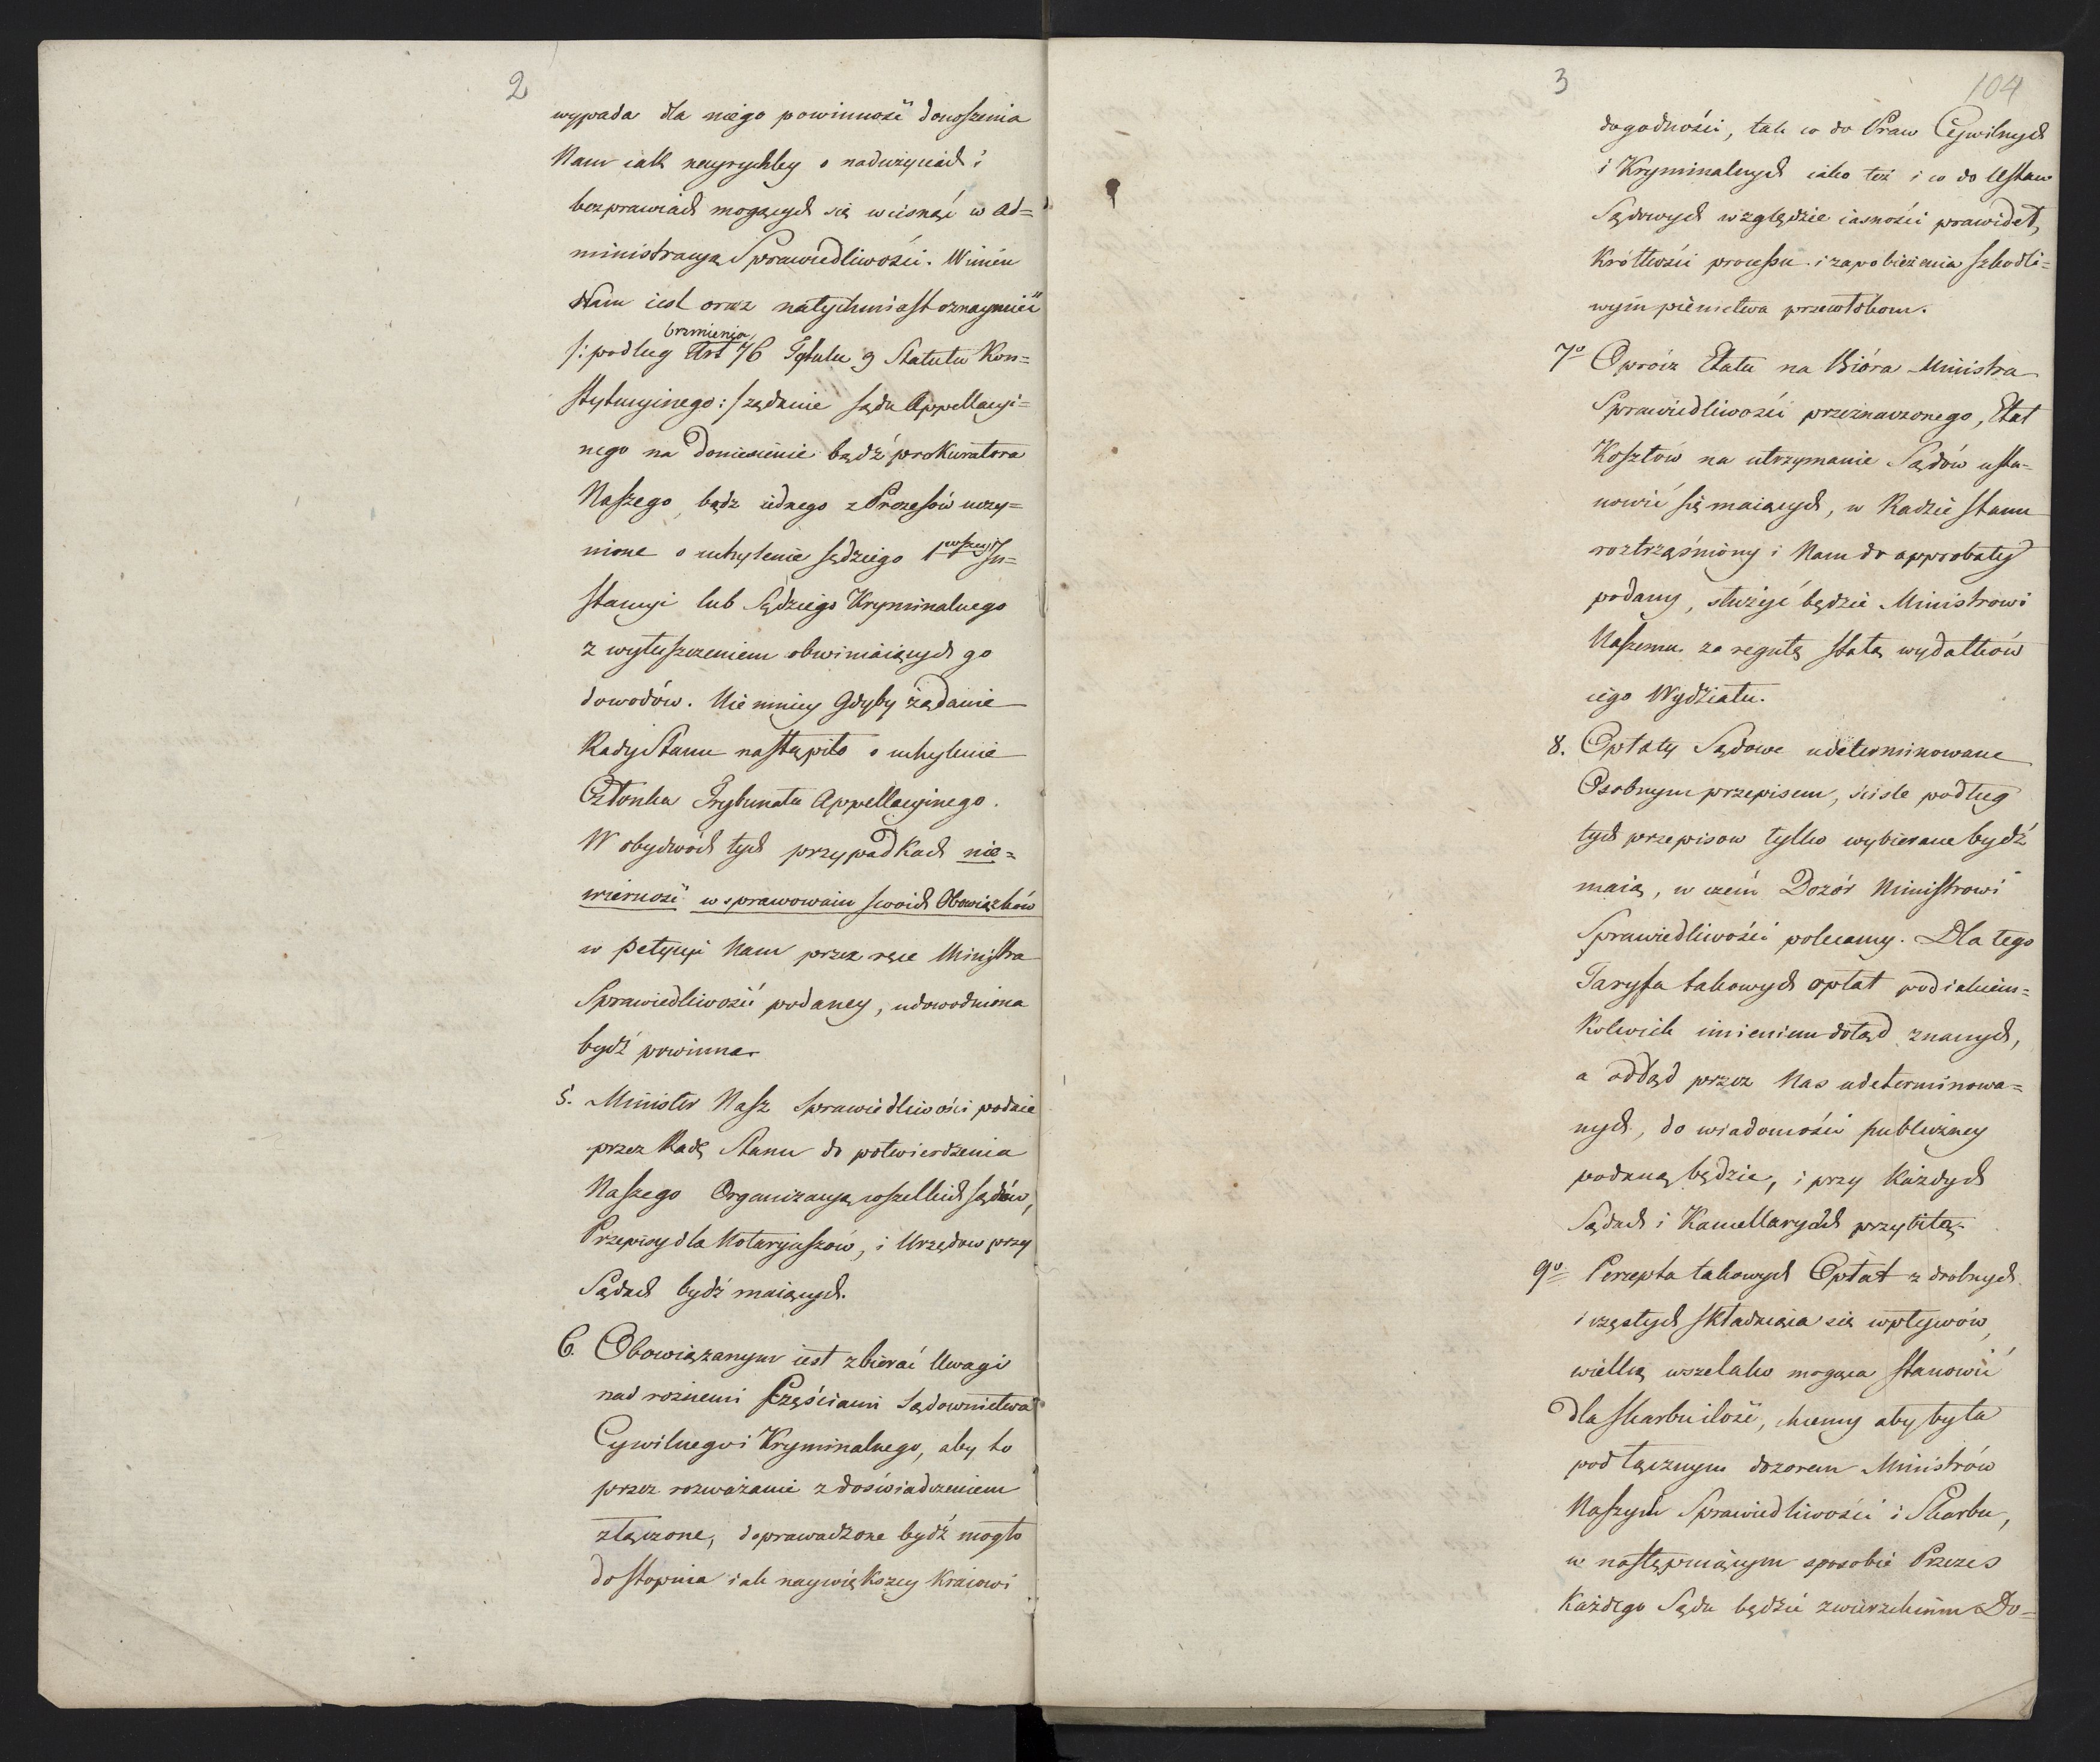 2
wypada dla niego powinność donoszenia
Nam iak nayrychley o nadużyciach i
bezprawiach mogących się wcisnąć w Ad=
ministracyą Sprawiedliwości. Winien
Nam iest oraz natychmiast oznaymić
brzmienia
/: podług Art 76 Tytułu 9 Statutu Kon=
stytucyinego :/ żądanie sądu Appellacyi=
nego na Doniesienie bądź prokuratora
Naszego, bądz iednego z Prezesów uczy=
nione o uchylenie sędziego 1wszey In=
stancyi lub Sędziego Kryminalnego
z wyłuszczeniem obwiniaiących go
dowodów. Nie mniey Gdyby żądanie
Rady Stanu nastąpiło o uchylenie
Członka Trybunału Appellacyinego.
W obydwóch tych przypadkach nie=
wierność w sprawowaniu swoich Obowiązków
w petycyi Nam przez ręce Ministra
Sprawiedliwości podaney, udowodniona
bydź powinna.
5. Minister Nasz Sprawiedliwości podaie
przez Radę Stanu do potwierdzenia
Naszego Organizacyą wszelkich sądów,
Przepisy dla Notaryuszow, i Urzędow przy
Sądach bydź maiących.
6. Obowiązanym iest zbierać Uwagi
nad rożnemi Częściami Sądownictwa
Cywilnego i Kryminalnego, aby to
przez rozważanie z doświadczeniem
złączone, doprawadzone bydź mogło
do stopnia iak naywiększey Kraiowi
3
104
dogodności, tak co do Praw Cywilnych
i Kryminalnych iako też i co do Ustaw
Sądowych względzie iasności prawideł,
Krótkości processu i zapobieżenia szkodli=
wym pienictwa przewłokom.
7o Oprócz Etatu na Bióra Ministra
Sprawiedliwości przeznaczonego, Etat
Kosztów na utrzymanie Sądów usta=
nowić się maiących, w Radzie stanu
roztrząśniony i Nam do approbaty
podany, służyć będzie Ministrowi
Naszemu za regułę stałą wydatków
iego Wydziału.
8. Opłaty Sądowe udeterminowane
Osobnym przepisem, ściśle podług
tych przepisow tylko wybierane bydź
maią, w czem Dozór Ministrowi
Sprawiedliwości polecamy. Dla tego
Taryffa takowych opłat pod iakiem=
Kolwiek imieniem dotąd znanych,
a oddąd przez Nas udeterminowa=
nych, do wiadomości publiczney
podaną będzie, i przy Każdych
Sądach i Kancellaryach przybitą.
9o Percepta takowych Opłat z drobnych
i częstych składaiąca się wpływów,
wielką wszelako mogąca stanowić
dla skarbu ilość, chcemy aby była
pod łącznym dozorem Ministrów
Naszych Sprawiedliwości i Skarbu,
w następuiącym sposobie Prezes
Każdego Sądu będzie zwierzchnim Do=